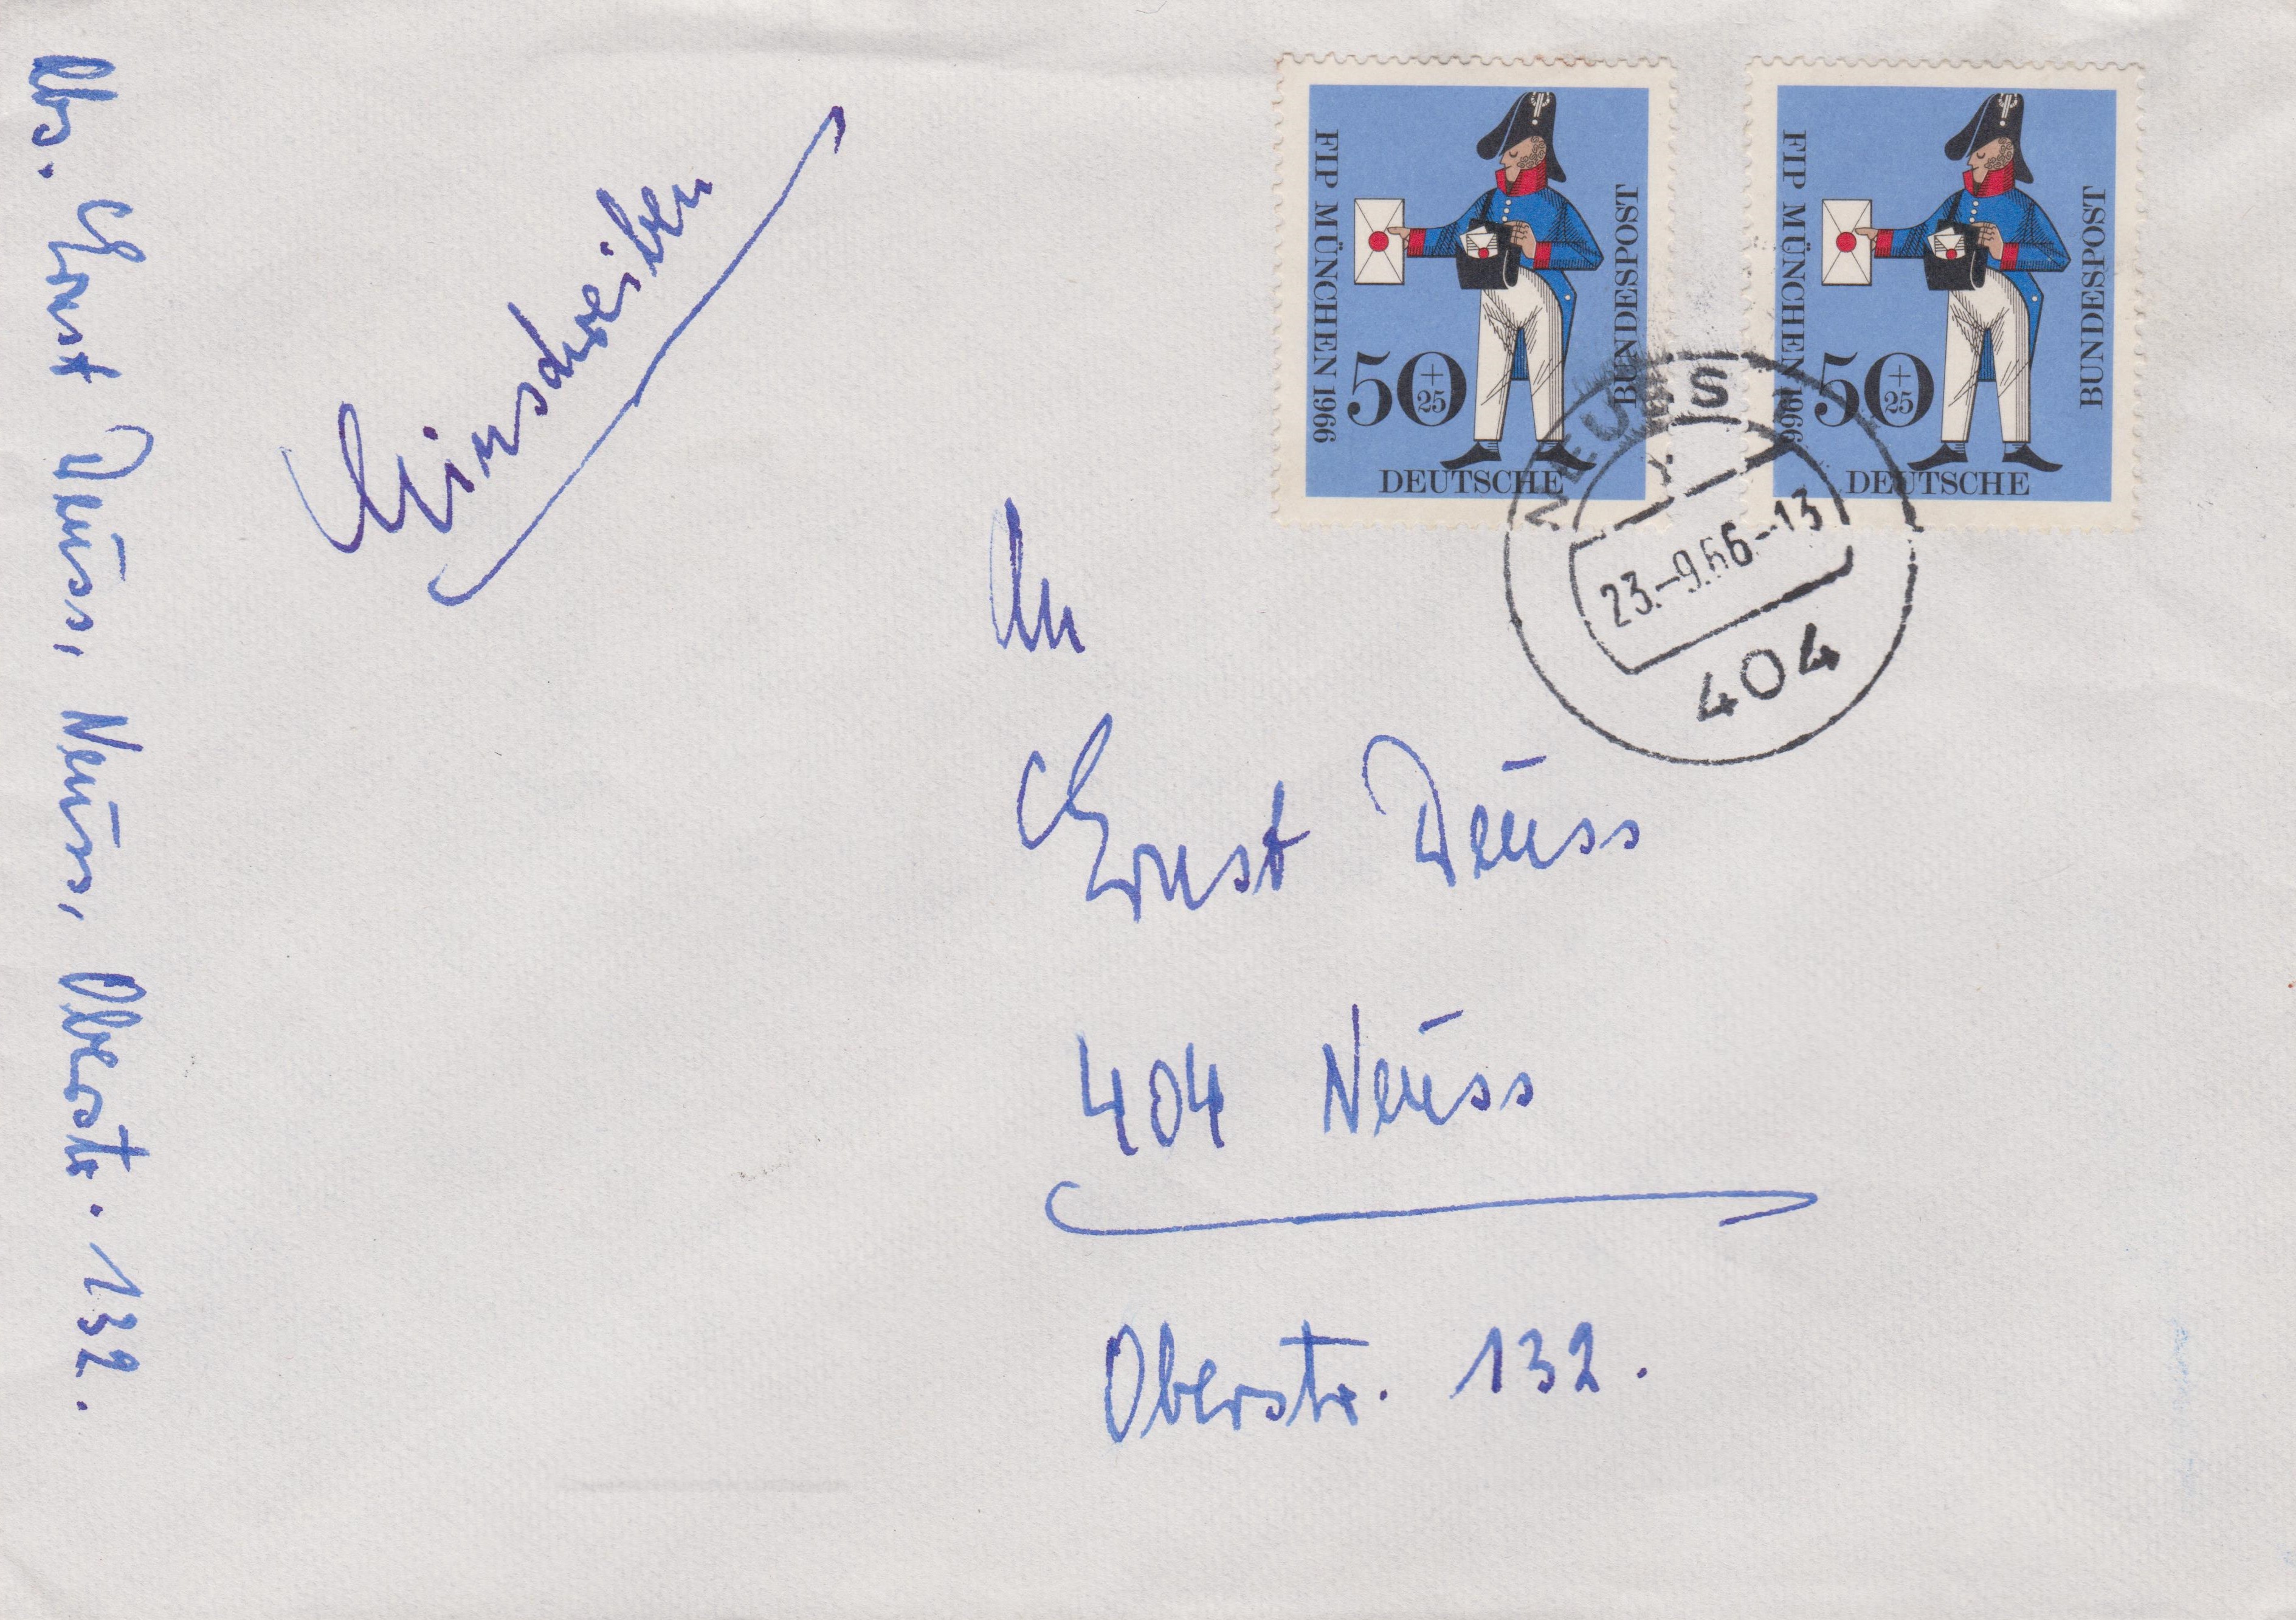 Abs. Ernst Deuss, Neuss, Oberstr. 132.
Einschreiben
FIP MÜNCHEN 1966
50
+
25
DEUTSCHE
BUNDESPOST
FIP MÜNCHEN 1966
50
+
25
DEUTSCHE
BUNDESPOST
NEUSS
23.-9.66-13
404
An
Ernst Deuss
404 Neuss
Oberstr. 132.